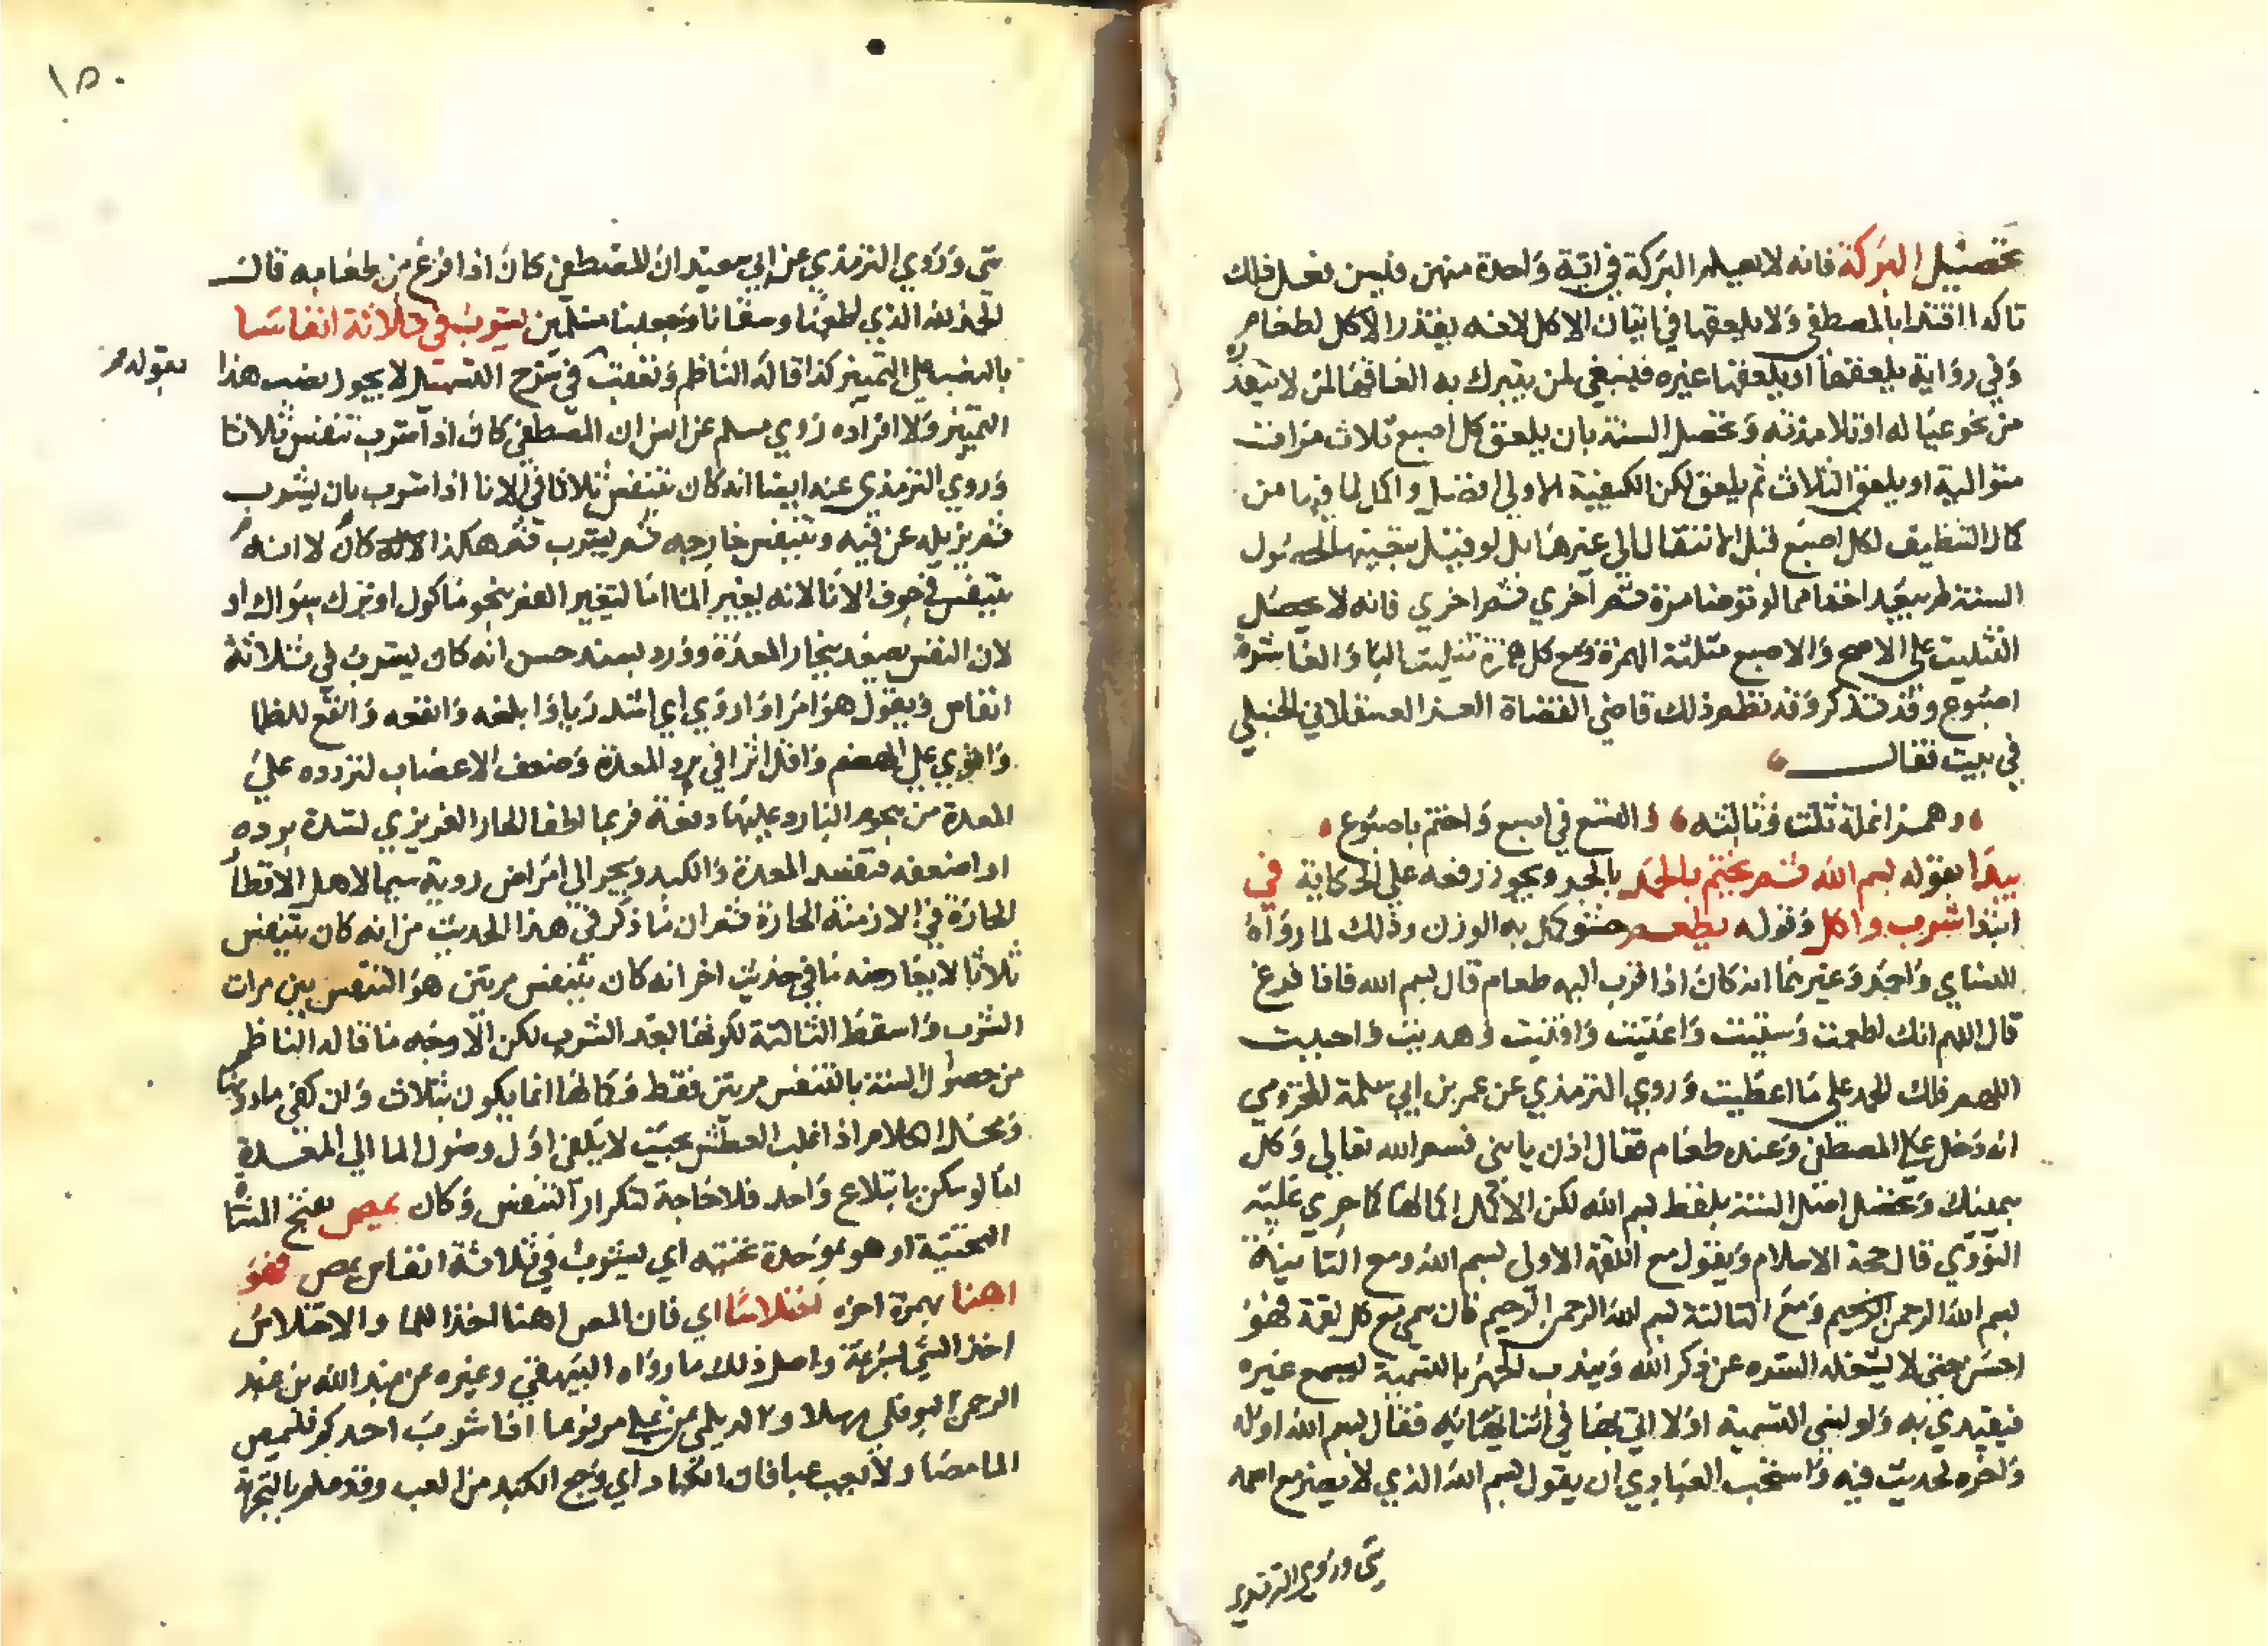 تحصيل البركة فانه لا يعلم البركة في اية واحدة منهن فليس فعل ذلك
تاكد اقتدا بالمصطفى ولا يلعقها في اتيان الاكل لانه يقذر الاكل لطعام
وفي رواية يلعقها او يلعقها غيره فينبغي لمن يتبرك به العاقها لمن لا يتقذره
من نحو عياله او تلامذته وتحصل السنة بان يلعق كل اصبع ثلاث مرات
متوالية او يلعق الثلاث ثم يلعق لكن الكيفية الاولى افضل واكمل لما فيها من
كمال التنظيف لكل اصبع قبل الانتقال الى غيرها بل لو قيل بتعينها لحصول
السنة لم يبعد اخذا مما لو توضا مرة ثم اخرى ثم اخرى فانه لا يحصل
التثليث على الاصح والاصبع مثلثة الهمزة ومع كل همزة تثليث البا والعاشرة
اصبوع وقد تذكر وقد نظم ذلك قاضي القضاة العز العسقلاني الحنبلي
في بيت فقال
وهمز انملة ثلث وثالثه والتسع في اصبع واختم باصبوع
يبدا بقوله بسم الله ثم يختم بالحمد بالجر ويجوز رفعه على الحكاية في
ابتدا شرب واكل وقوله يطعم حشو كمل به الوزن وذلك لما رواه
النساي واحمد وغيرهما انه كان اذا قرب اليه طعام قال بسم الله فاذا فرغ
قال اللهم انك اطعمت وسقيت واغنيت واقنيت وهديت واحييت
اللهم فلك الحمد على ما اعطيت وروي الترمذي عن عمر بن ابي سلمة المخزومي
انه دخل على المصطفى وعنده طعام فقال ادن يا بني فسم الله تعالى وكل
بيمينك وتحصل اصل السنة بلفظ بسم الله لكن الاكمل اكمالها كما جرى عليه
النووي قال حجة الاسلام ويقول مع اللقمة الاولى بسم الله ومع الثانية
بسم الله الرحمن الرحيم ومع الثالثة بسم الله الرحمن الرحيم فان سمى مع كل لقمة فهو
احسن حتى لا يشغله الشره عن ذكر الله ويندب الجهر بالتسمية ليسمع غيره
فيقتدي به ولو نسي التسمية اولا اتى بها في اثنائه فقال بسم الله اوله
واخره لحديث فيه واستحب العبادي ان يقول بسم الله الذي لا يضر مع اسمه
شي وروي الترمذي
١٥٠
شي وروي الترمذي عن ابي سعيد ان المصطفى كان اذا فرغ من طعامه قال
الحمد لله الذي اطعمنا وسقانا وجعلنا مسلمين يشرب في ثلاثة انفاسا
بالنصب على التمييز كذا قاله الناظم وتعقب في شرح التسهيل لا يجوز نصب هذا
بقوله
التمييز ولا افراده روي مسلم عن انس ان المصطفى كان اذا شرب تنفس ثلاثا
وروي الترمذي عنه ايضا انه كان يتنفس ثلاثا في الانا اذا شرب بان يشرب
ثم يزيله عن فيه ويتنفس خارجه ثم يشرب ثم هكذا كان لا انه
يتنفس في جوف الانا لانه يغير الما اما لتغير الفم بنحو ماكول او ترك سواك او
لان النفس يصعد ببخار المعدة وورد بسند حسن انه كان يشرب في ثلاثة
انفاس ويقول هو امرا واروي اي اشد ريا وابلغه وانفعه وانقع للظما
واقوى على الهضم واقل اثرا في برد المعدة وضعف الاعصاب لتردده على
المعدة من هجوم البارد عليها دفعة فربما اطفا الحار الغريزي لشدة برده
او اضعفه فتفسد المعدة والكبد ويجر الى امراض ردية سيما لاهل الاقطار
الحارة في الازمنة الحارة ثم ان ما ذكر في هذا الحديث من انه كان يتنفس
ثلاثا لا يعارضه ما في حديث اخر انه كان يتنفس مرتين هو التنفس بين مرات
الشرب واسقط الثالثة لكونها بعد الشرب لكن الاوجه ما قاله الناظم
من حصول السنة بالتنفس مرتين فقط وكمالها انما يكون بثلاث وان كفى ما دونها
ومحل الكلام اذا غلب العطش بحيث لا يكفي اول وصول الما الى المعدة
اما لو سكن بابتلاع واحد فلا حاجة لتكرار التنفس وكان يمص بفتح المثناة
التحتية او هو بموحدة تحتية اي يشرب في ثلاثة انفاس بمص فهو
اهنا بهمزة اخره اختلاسا اي فان المص اهنا اخذا للما والاختلاس
اخذ الشي بسرعة واصل ذلك ما رواه البيهقي وغيره عن عبد الله بن عبد
الرحمن النوفلي مرسلا والديلمي عن علي مرفوعا اذا شرب احدكم فليمص
الما مصا ولا يعب عبا فان الكباد اي وجع الكبد من العب وقد علم بالتجربة